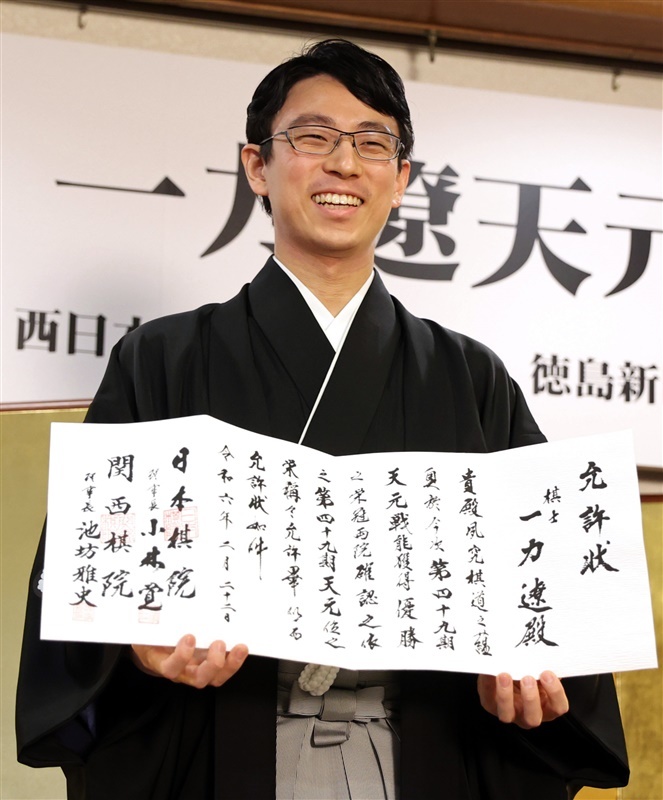 一力遼天元
西日本
徳島新
允許状
棋士 一力遼殿
貴殿夙究棋道之蘊
奥於今次第四十九期
天元戦能獲得優勝
之栄冠両院確認之依
之第四十九期天元位之
栄称令允許畢仍而
允許状如件
令和六年二月二十二日
日本棋院
理事長 小林覚
関西棋院
理事長 池坊雅史